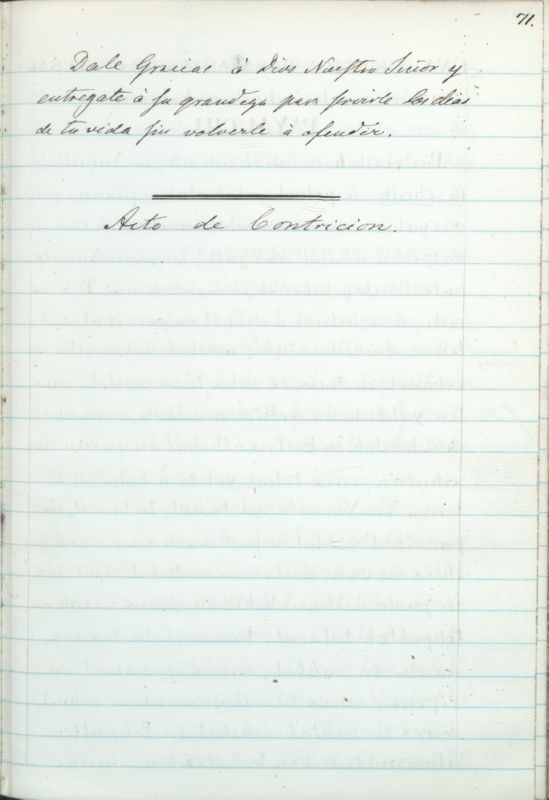 71.
Dale Gracias à Dios Nuestro Señor y
entregate à su grandeza para servirle los dias
de tu vida sin volverle à ofender.
Acto de Contricion.